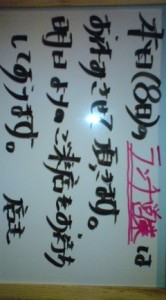 本日(8日)のランチ営業は
お休みさせて頂きます。
明日よりのご来店をお待ち
しております。 店主